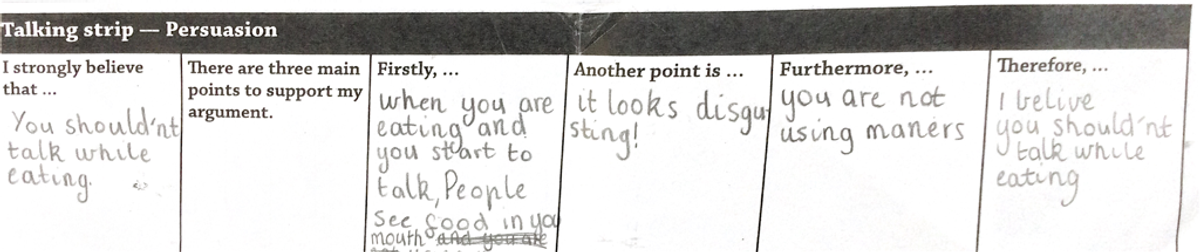 Talking strip — Persuasion
I strongly believe
that ...
You should'nt
talk while
eating.
There are three main
points to support my
argument.
Firstly, ...
when you are
eating and
you start to
talk, People
see food in you
mouth and you are
Another point is ...
it looks disgu
sting!
Furthermore, ...
you are not
using maners
Therefore, ...
I belive
you should'nt
talk while
eating